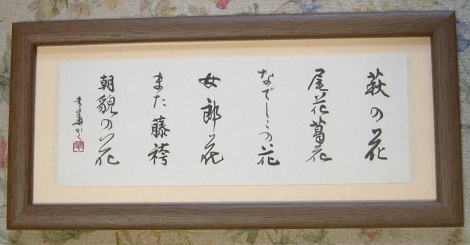 萩の花
尾花葛花
なでしこの花
女郎花
また藤袴
朝貌の花